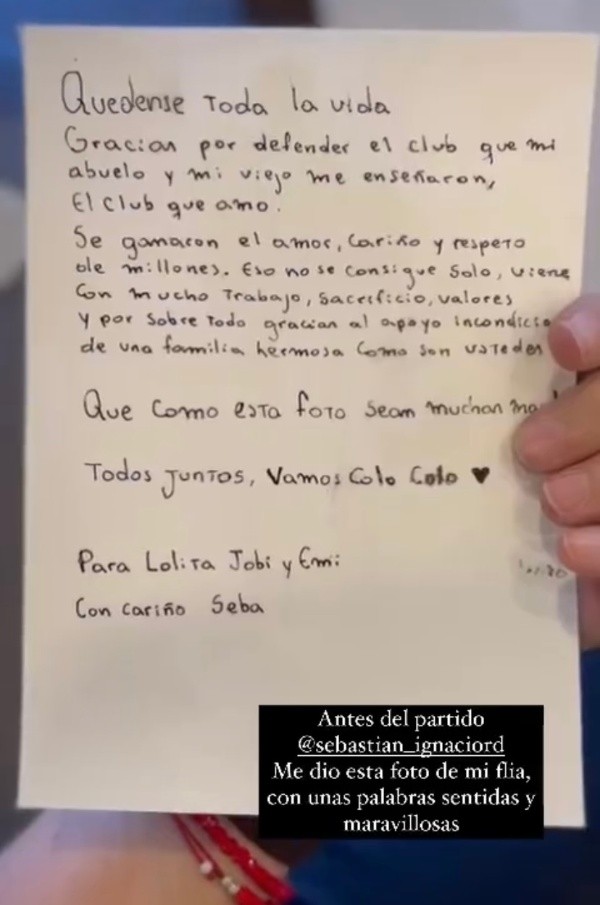 Quedense Toda la vida
Gracias por defender el club que mi
abuelo y mi viejo me enseñaron,
El club que amo.
Se ganaron el amor, cariño y respeto
de millones. Eso no se consigue solo, viene
Con mucho Trabajo, sacrificio, valores
y por sobre todo gracias al apoyo incondicio
de una familia hermosa como son ustedes
Que como esta foto sean muchas
Todos juntos, Vamos Colo Colo ♥
Para Lolita Jobi y Emi
Con cariño Seba
Antes del partido
@sebastian_ignaciord
Me dio esta foto de mi flia,
con unas palabras sentidas y
maravillosas